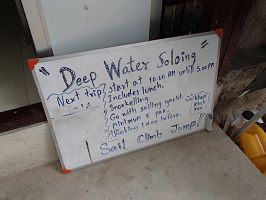 Deep Water Soloing
Next trip
start at 10.00 AM until 5.00 PM
Includes lunch.
Snorkelling
Go with sailing yacht.
Minimum 5 pax.
Booking 1 day before.
Sail Climb Jump!